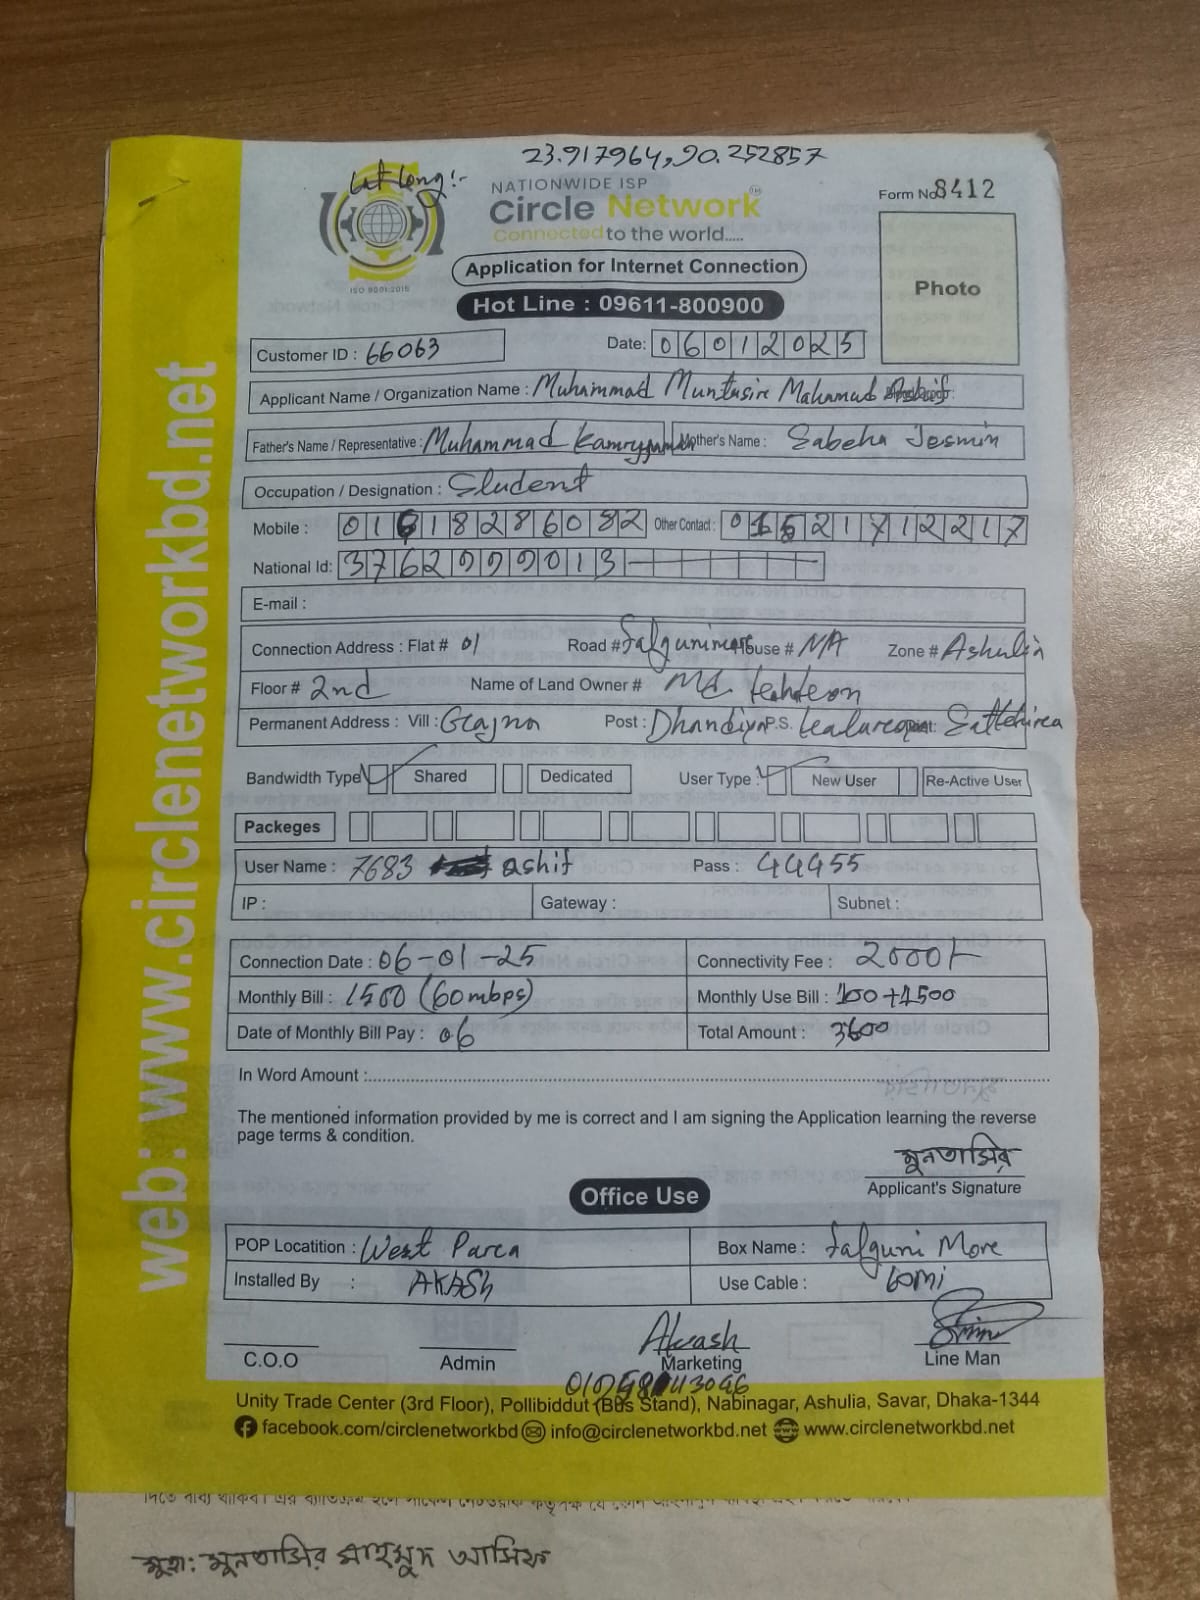 23.917964, 90.252857
Lat Long:-
NATIONWIDE ISP
Circle Network™
Connected to the world.....
ISO 9001:2015
Form No 8412
Photo
Application for Internet Connection
Hot Line : 09611-800900
Customer ID : 66063 Date: 06012025
Applicant Name / Organization Name : Muhammad Muntasir Mahamud
Father's Name / Representative : Muhammad Kamryzaman Mother's Name : Sabeha Jesmin
Occupation / Designation : Student
Mobile : 01618286082 Other Contact : 01521712217
National Id: 3762999013
E-mail :
Connection Address : Flat # 01 Road # falgunimore House # NA Zone # Ashulia
Floor # 2nd Name of Land Owner # Md
Permanent Address : Vill : Post : Dhandiya P.S. Dist:
Bandwidth Type Shared Dedicated User Type : New User Re-Active User
Packeges
User Name : 7683 ashif Pass : 44455
IP : Gateway : Subnet :
Connection Date : 06-01-25 Connectivity Fee : 2000/-
Monthly Bill : 1500 (60mbps) Monthly Use Bill : 100+1500
Date of Monthly Bill Pay : 06 Total Amount : 3600
In Word Amount :
The mentioned information provided by me is correct and I am signing the Application learning the reverse
page terms & condition.
মুনতাসির
Applicant's Signature
Office Use
POP Locatition : West Parca Box Name : falguni More
Installed By : AKASh Use Cable : 60mi
Akash
C.O.O Admin Marketing Line Man
Unity Trade Center (3rd Floor), Pollibiddut (Bus Stand), Nabinagar, Ashulia, Savar, Dhaka-1344
facebook.com/circlenetworkbd info@circlenetworkbd.net www.circlenetworkbd.net
web: www.circlenetworkbd.net
মুহা: মুনতাসির মাহমুদ আসিফ